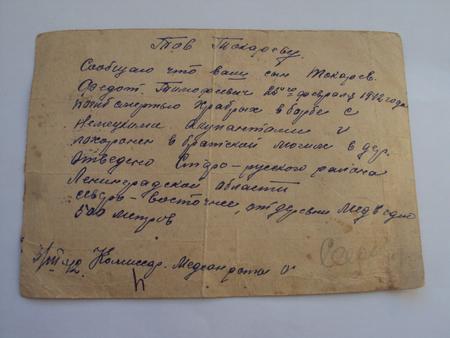 Тов Токареву.
Сообщаю что ваш сын Токарев.
Федот. Тимофеевич 25го февраля 1942 года
погиб смертью храбрых в борьбе с
Немецкими окупантами и
похоронен в братской могиле в дер.
Отведено Старо-русского района
Ленинградской области
северо-восточнее, от деревни Медведно
500 метров
3/III 42. Комиссар. Медсанроты